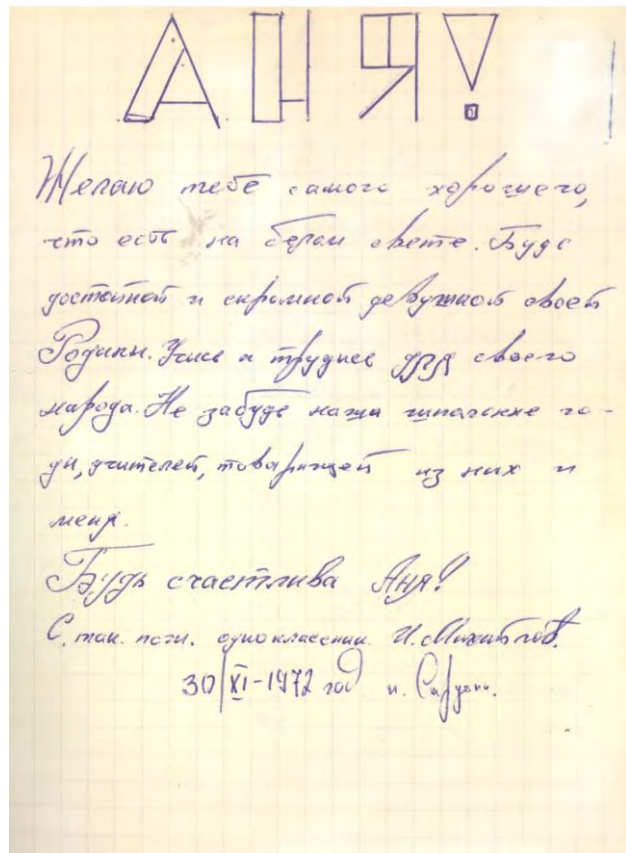 АНЯ!
Желаю тебе самого хорошего,
что есть на белом свете. Будь
достойной и скромной девушкой своей
Родины. Учись и трудись для своего
народа. Не забудь наши школьные го-
ды, учителей, товарищей из них и
меня.
Будь счастлива Аня!
С. так. пож. одноклассник. И. Михайлов.
30/XI-1972 год п.